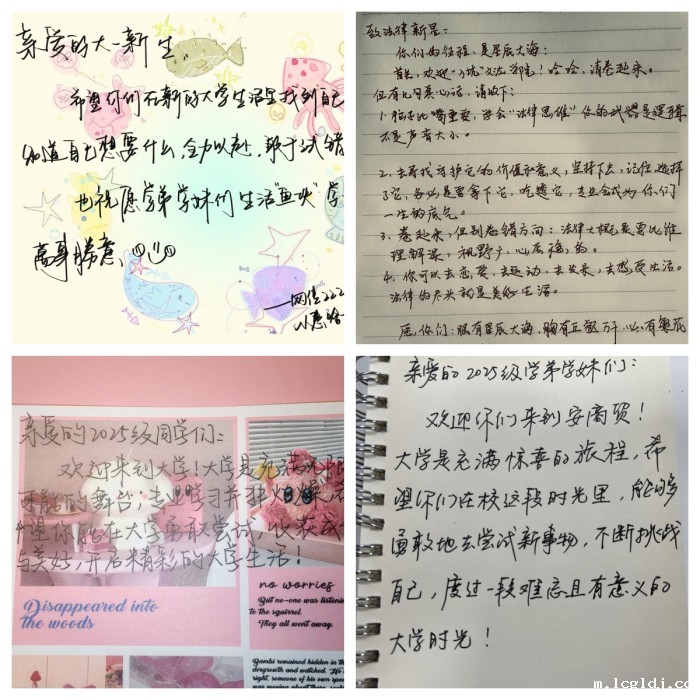 亲爱的大一新生
希望你们在新的大学生活里找到自己
知道自己想要什么,全力以赴,敢于试错
也祝愿学弟学妹们生活“鱼”快 学
万事胜意
——网信222
致法律新星:
你们的征程,是星辰大海:
首先,欢迎“入坑”文法郑皂!哈哈,请卷起来。
但有几句真心话,请收下:
1. 脑子比嘴重要,学会“法律思维”你的武器是逻辑
不是声音大小。
2. 去寻找守护它的价值和意义,坚持下去,记住,选择
了它,务必要拿下它,吃透它,专业会成为你们
一生的底气。
3. 卷起来,但别卷错方向:法律大概是要比谁
理解深,视野广,心态稳,的。
4. 你可以去恋爱,去运动,去发长,去感受生活。
法律的尽头就是美好生活。
愿,你们:眼有星辰大海,胸有丘壑万千,心有繁花
亲爱的2025级同学们:
欢迎来到大学!大学是充满无限
可能的舞台;专业学习并非
望你能在大学勇敢尝试,收获成长
与美好,开启精彩的大学生活!
Disappeared into
the woods
no worries
But no-one was listening
to the squirrel.
They all went away.
Bambi remained hidden in the
undergrowth and watched.
right, someone of his own spec
was moving about there.
亲爱的2025级学弟学妹们:
欢迎你们来到安商贸!
大学是充满惊喜的旅程,希
望你们在校这段时光里,能够
勇敢地去尝试新事物,不断挑战
自己,度过一段难忘且有意义的
大学时光!
m.lcgldj.co